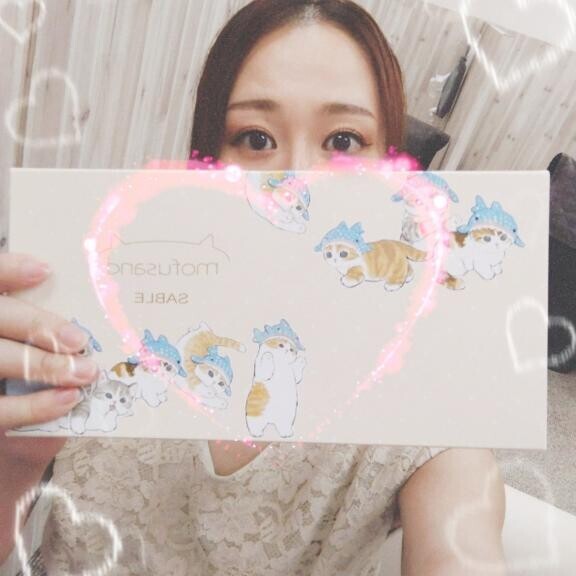 mofusand
SABLE